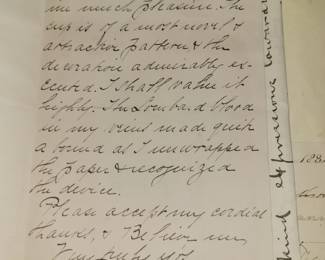 me much pleasure. The
cup is of a most novel &
attractive pattern & the
decoration admirably ex-
ecuted. I shall value it
highly. The Lombard blood
in my veins made quite
a bound as I unwrapped
the paper & recognized
the device.
Please accept my cordial
thanks, & Believe me
Very truly yrs.
kind expressions toward
188